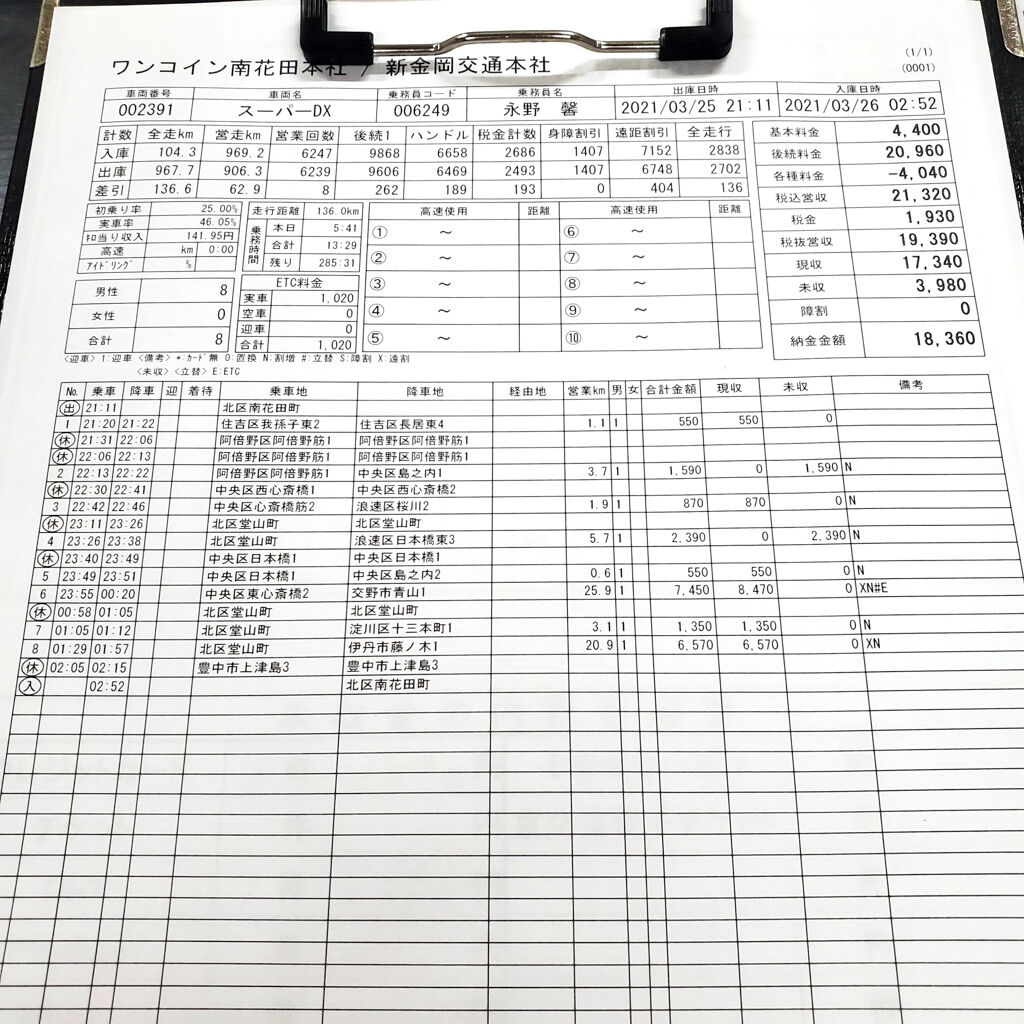 ワンコイン南花田本社 / 新金岡交通本社
(1/1)
(0001)
車両番号 車両名 乗務員コード 乗務員名 出庫日時 入庫日時
002391 スーパーDX 006249 永野 馨 2021/03/25 21:11 2021/03/26 02:52
計数 全走km 営走km 営業回数 後続1 ハンドル 税金計数 身障割引 遠距割引 全走行
入庫 104.3 969.2 6247 9868 6658 2686 1407 7152 2838
出庫 967.7 906.3 6239 9606 6469 2493 1407 6748 2702
差引 136.6 62.9 8 262 189 193 0 404 136
基本料金 4,400
後続料金 20,960
各種料金 -4,040
税込営収 21,320
税金 1,930
税抜営収 19,390
現収 17,340
未収 3,980
障割 0
納金金額 18,360
初乗り率 25.00%
実車率 46.05%
キロ当り収入 141.95円
高速 km 0:00
アイドリング %
走行距離 136.0km
乗務時間
本日 5:41
合計 13:29
残り 285:31
男性 8
女性 0
合計 8
ETC料金
実車 1,020
空車 0
迎車 0
合計 1,020
高速使用 距離 高速使用 距離
① ～ ⑥ ～
② ～ ⑦ ～
③ ～ ⑧ ～
④ ～ ⑨ ～
⑤ ～ ⑩ ～
<迎車> 1:迎車 <備考> *:カード無 O:置換 N:割増 #:立替 S:障割 X:遠割
<未収> <立替> E:ETC
No. 乗車 降車 迎 着待 乗車地 降車地 経由地 営業km 男 女 合計金額 現収 未収 備考
出 21:11 北区南花田町
1 21:20 21:22 住吉区我孫子東2 住吉区長居東4 1.1 1 550 550 0
休 21:31 22:06 阿倍野区阿倍野筋1 阿倍野区阿倍野筋1
休 22:06 22:13 阿倍野区阿倍野筋1 阿倍野区阿倍野筋1
2 22:13 22:22 阿倍野区阿倍野筋1 中央区島之内1 3.7 1 1,590 0 1,590 N
休 22:30 22:41 中央区西心斎橋1 中央区西心斎橋2
3 22:42 22:46 中央区心斎橋筋2 浪速区桜川2 1.9 1 870 870 0 N
休 23:11 23:26 北区堂山町 北区堂山町
4 23:26 23:38 北区堂山町 浪速区日本橋東3 5.7 1 2,390 0 2,390 N
休 23:40 23:49 中央区日本橋1 中央区日本橋1
5 23:49 23:51 中央区日本橋1 中央区島之内2 0.6 1 550 550 0 N
6 23:55 00:20 中央区東心斎橋2 交野市青山1 25.9 1 7,450 8,470 0 XN#E
休 00:58 01:05 北区堂山町 北区堂山町
7 01:05 01:12 北区堂山町 淀川区十三本町1 3.1 1 1,350 1,350 0 N
8 01:29 01:57 北区堂山町 伊丹市藤ノ木1 20.9 1 6,570 6,570 0 XN
休 02:05 02:15 豊中市上津島3 豊中市上津島3
入 02:52 北区南花田町